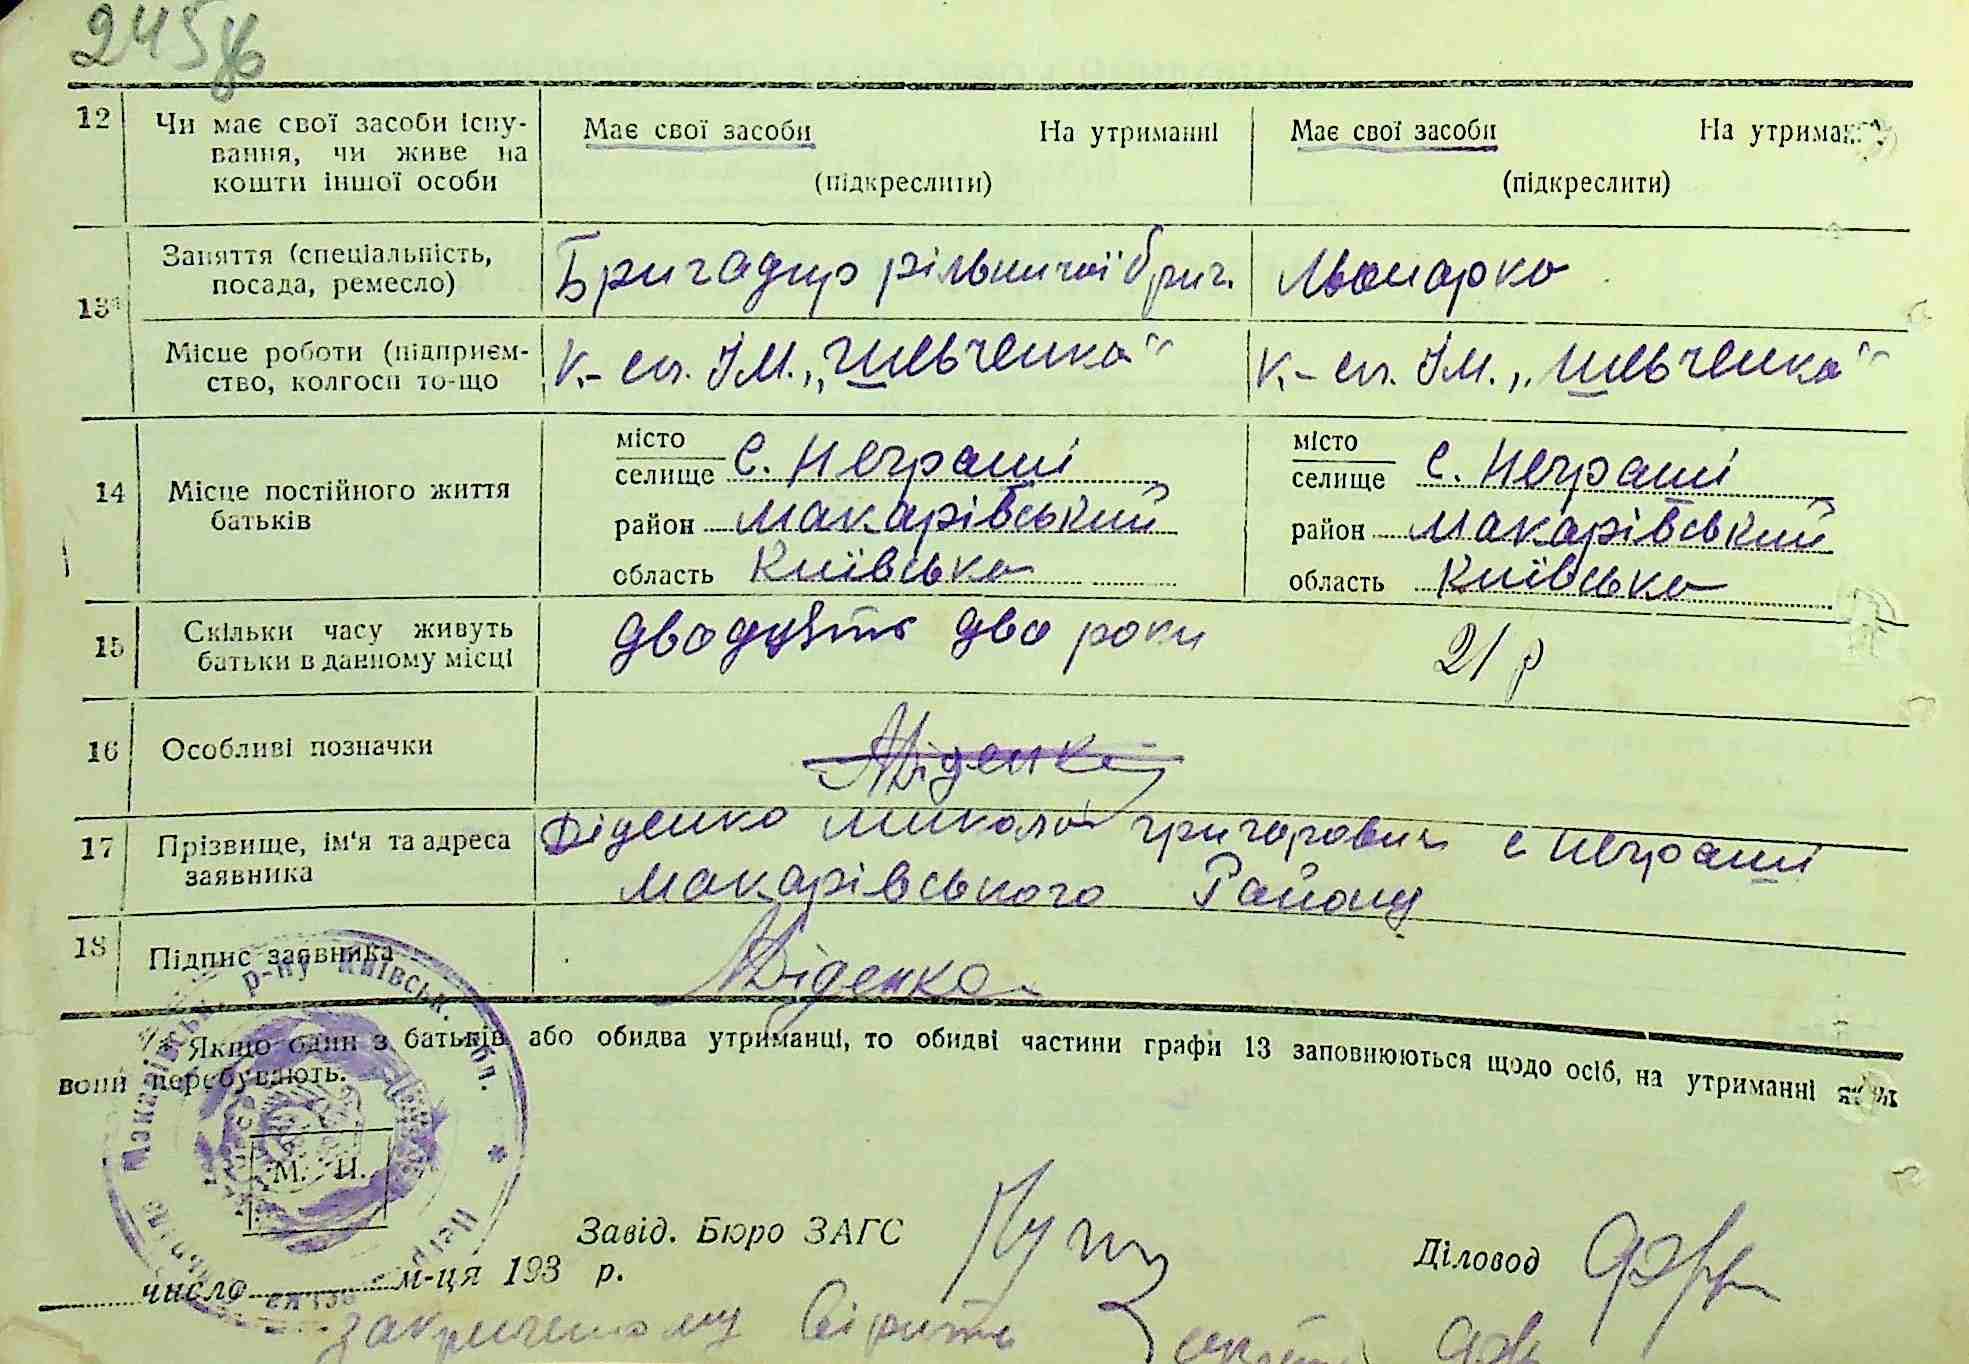 245
12 Чи має свої засоби існу-
вання, чи живе на
кошти іншої особи
Має свої засоби На утриманні
(підкреслити)
Має свої засоби На утриман
(підкреслити)
13* Заняття (спеціальність,
посада, ремесло)
Бригадир рільничої бриг.
Місце роботи (підприєм-
ство, колгосп то-що
К.-сп. Ім. „Шевченка"
К.-сп. Ім. „Шевченка"
14 Місце постійного життя
батьків
місто
селище с. Неграші
район Макарівський
область Київська
місто
селище с. Неграші
район Макарівський
область Київська
15 Скільки часу живуть
батьки в данному місці
двадцять два роки
21 р
16 Особливі позначки
17 Прізвище, ім'я та адреса
заявника
Діденко Микола Григорович с Неграші
Макарівського Району
18 Підпис заявника
Діденко
* Якщо один з батьків або обидва утриманці, то обидві частини графи 13 заповнюються щодо осіб, на утриманні яких
вони перебувають.
Макарівськ. р-ну Київськ. обл.
М. П.
Завід. Бюро ЗАГС
Діловод
число м-ця 193 р.